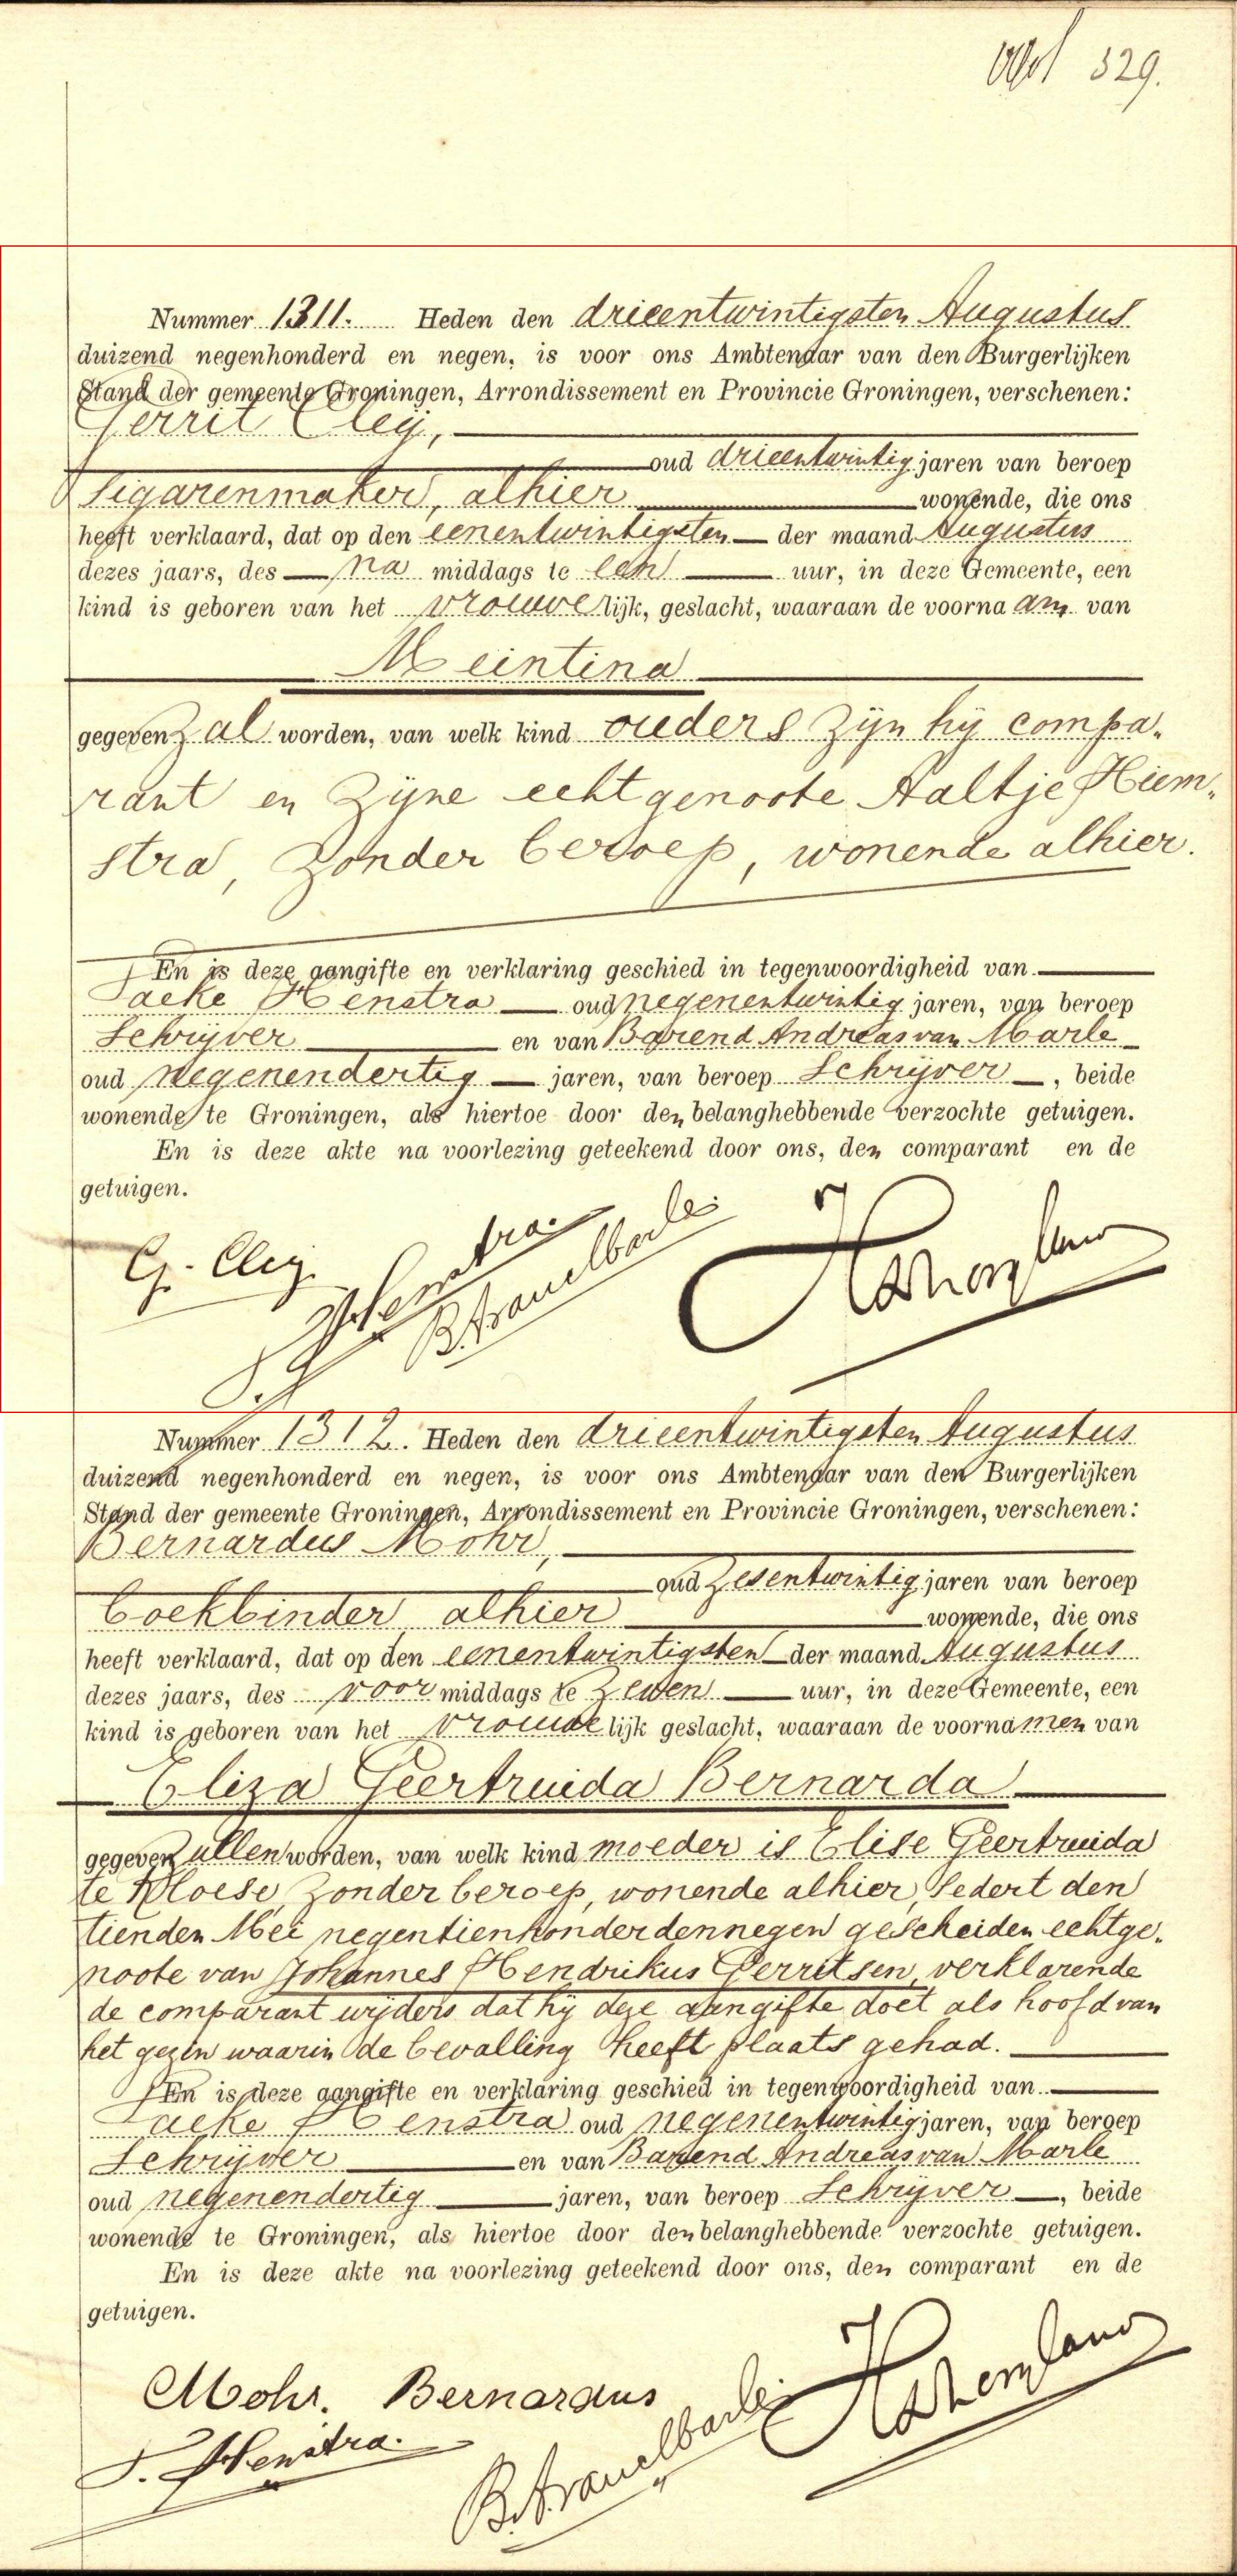 329.
Nummer 1311. Heden den drieentwintigsten Augustus
duizend negenhonderd en negen, is voor ons Ambtenaar van den Burgerlijken
Stand der gemeente Groningen, Arrondissement en Provincie Groningen, verschenen:
Gerrit Cleij,
oud drieentwintig jaren van beroep
Sigarenmaker, alhier wonende, die ons
heeft verklaard, dat op den eenentwintigsten der maand Augustus
dezes jaars, des na middags te een uur, in deze Gemeente, een
kind is geboren van het vrouwelijk, geslacht, waaraan de voornaam van
Meintina
gegeven zal worden, van welk kind ouders zijn hij compa„
rant en zijne echtgenoote Aaltje Hiem„
stra, zonder beroep, wonende alhier.
En is deze aangifte en verklaring geschied in tegenwoordigheid van
Taeke Henstra oud negenentwintig jaren, van beroep
Schrijver en van Barend Andreas van Marle
oud negenendertig jaren, van beroep Schrijver, beide
wonende te Groningen, als hiertoe door den belanghebbende verzochte getuigen.
En is deze akte na voorlezing geteekend door ons, den comparant en de
getuigen.
G. Cleij.
T. Henstra.
Nummer 1312. Heden den drieentwintigsten Augustus
duizend negenhonderd en negen, is voor ons Ambtenaar van den Burgerlijken
Stand der gemeente Groningen, Arrondissement en Provincie Groningen, verschenen:
Bernardus Mohr,
oud zesentwintig jaren van beroep
boekbinder alhier wonende, die ons
heeft verklaard, dat op den eenentwintigsten der maand Augustus
dezes jaars, des voor middags te zeven uur, in deze Gemeente, een
kind is geboren van het vrouwelijk geslacht, waaraan de voornamen van
Eliza Geertruida Bernarda
gegeven zullen worden, van welk kind moeder is Elise Geertruida
te Kloese, zonder beroep, wonende alhier, sedert den
tienden Mei negentienhonderdennegen gescheiden echtge„
noote van Johannes Hendrikus Gerritsen, verklarende
de comparant wijders dat hij deze aangifte doet als hoofd van
het gezin waarin de bevalling heeft plaats gehad.
En is deze aangifte en verklaring geschied in tegenwoordigheid van
Taeke Henstra oud negenentwintig jaren, van beroep
Schrijver en van Barend Andreas van Marle
oud negenendertig jaren, van beroep Schrijver, beide
wonende te Groningen, als hiertoe door den belanghebbende verzochte getuigen.
En is deze akte na voorlezing geteekend door ons, den comparant en de
getuigen.
Mohr. Bernardus
T. Henstra.